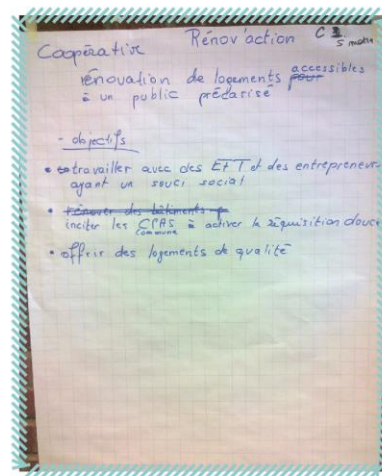 Coopérative Rénov'action C 3.
5 matin
rénovation de logements accessibles
à un public précarisé
- objectifs
• travailler avec des EFT et des entrepreneur
ayant un souci social
• rénover des bâtiments
inciter les CPAS à activer la réquisition douce
commune
• offrir des logements de qualité